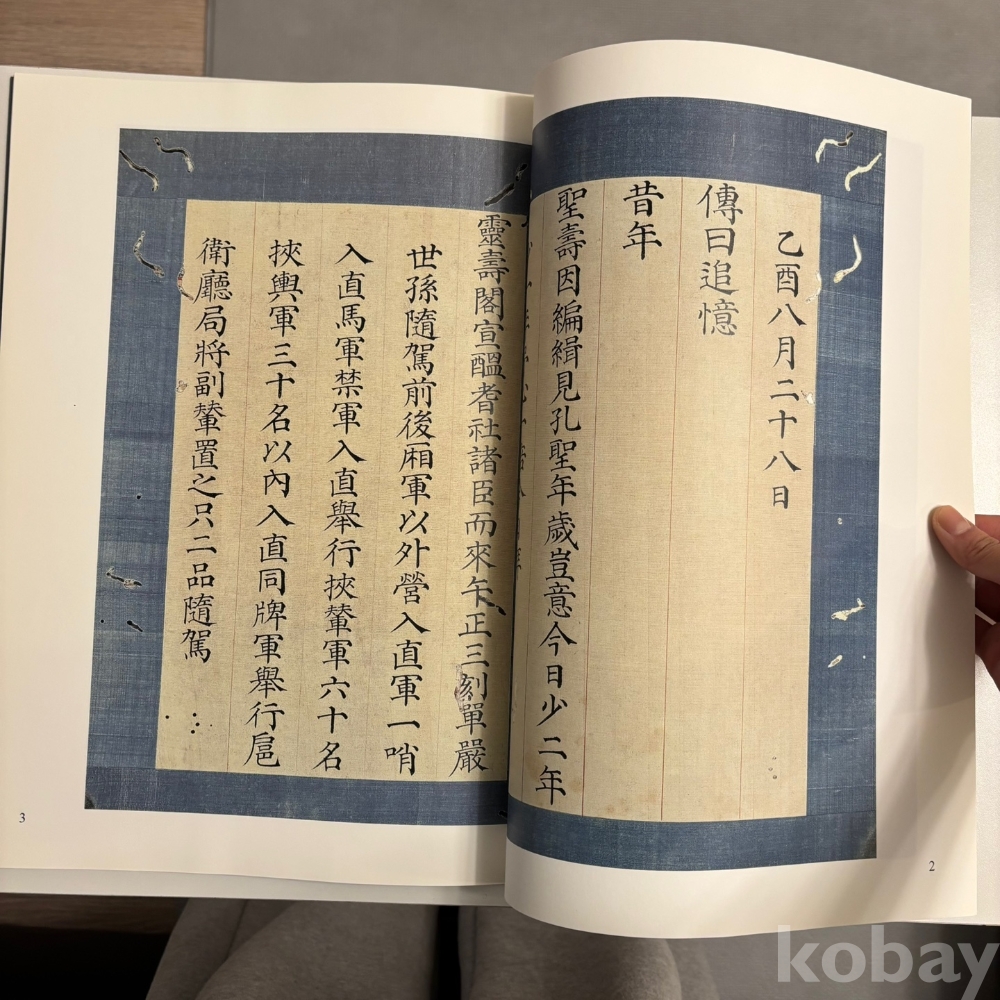 乙酉八月二十八日
傳曰追憶
昔年
聖壽因編緝見孔聖年歲豈意今日少二年
2
靈壽閣宣醞耆社諸臣而來午正三刻單嚴
世孫隨駕前後廂軍以外營入直軍一哨
入直馬軍禁軍入直舉行挾輦軍六十名
挾輿軍三十名以內入直同牌軍舉行扈
衛廳局將副輦置之只二品隨駕
3
kobay